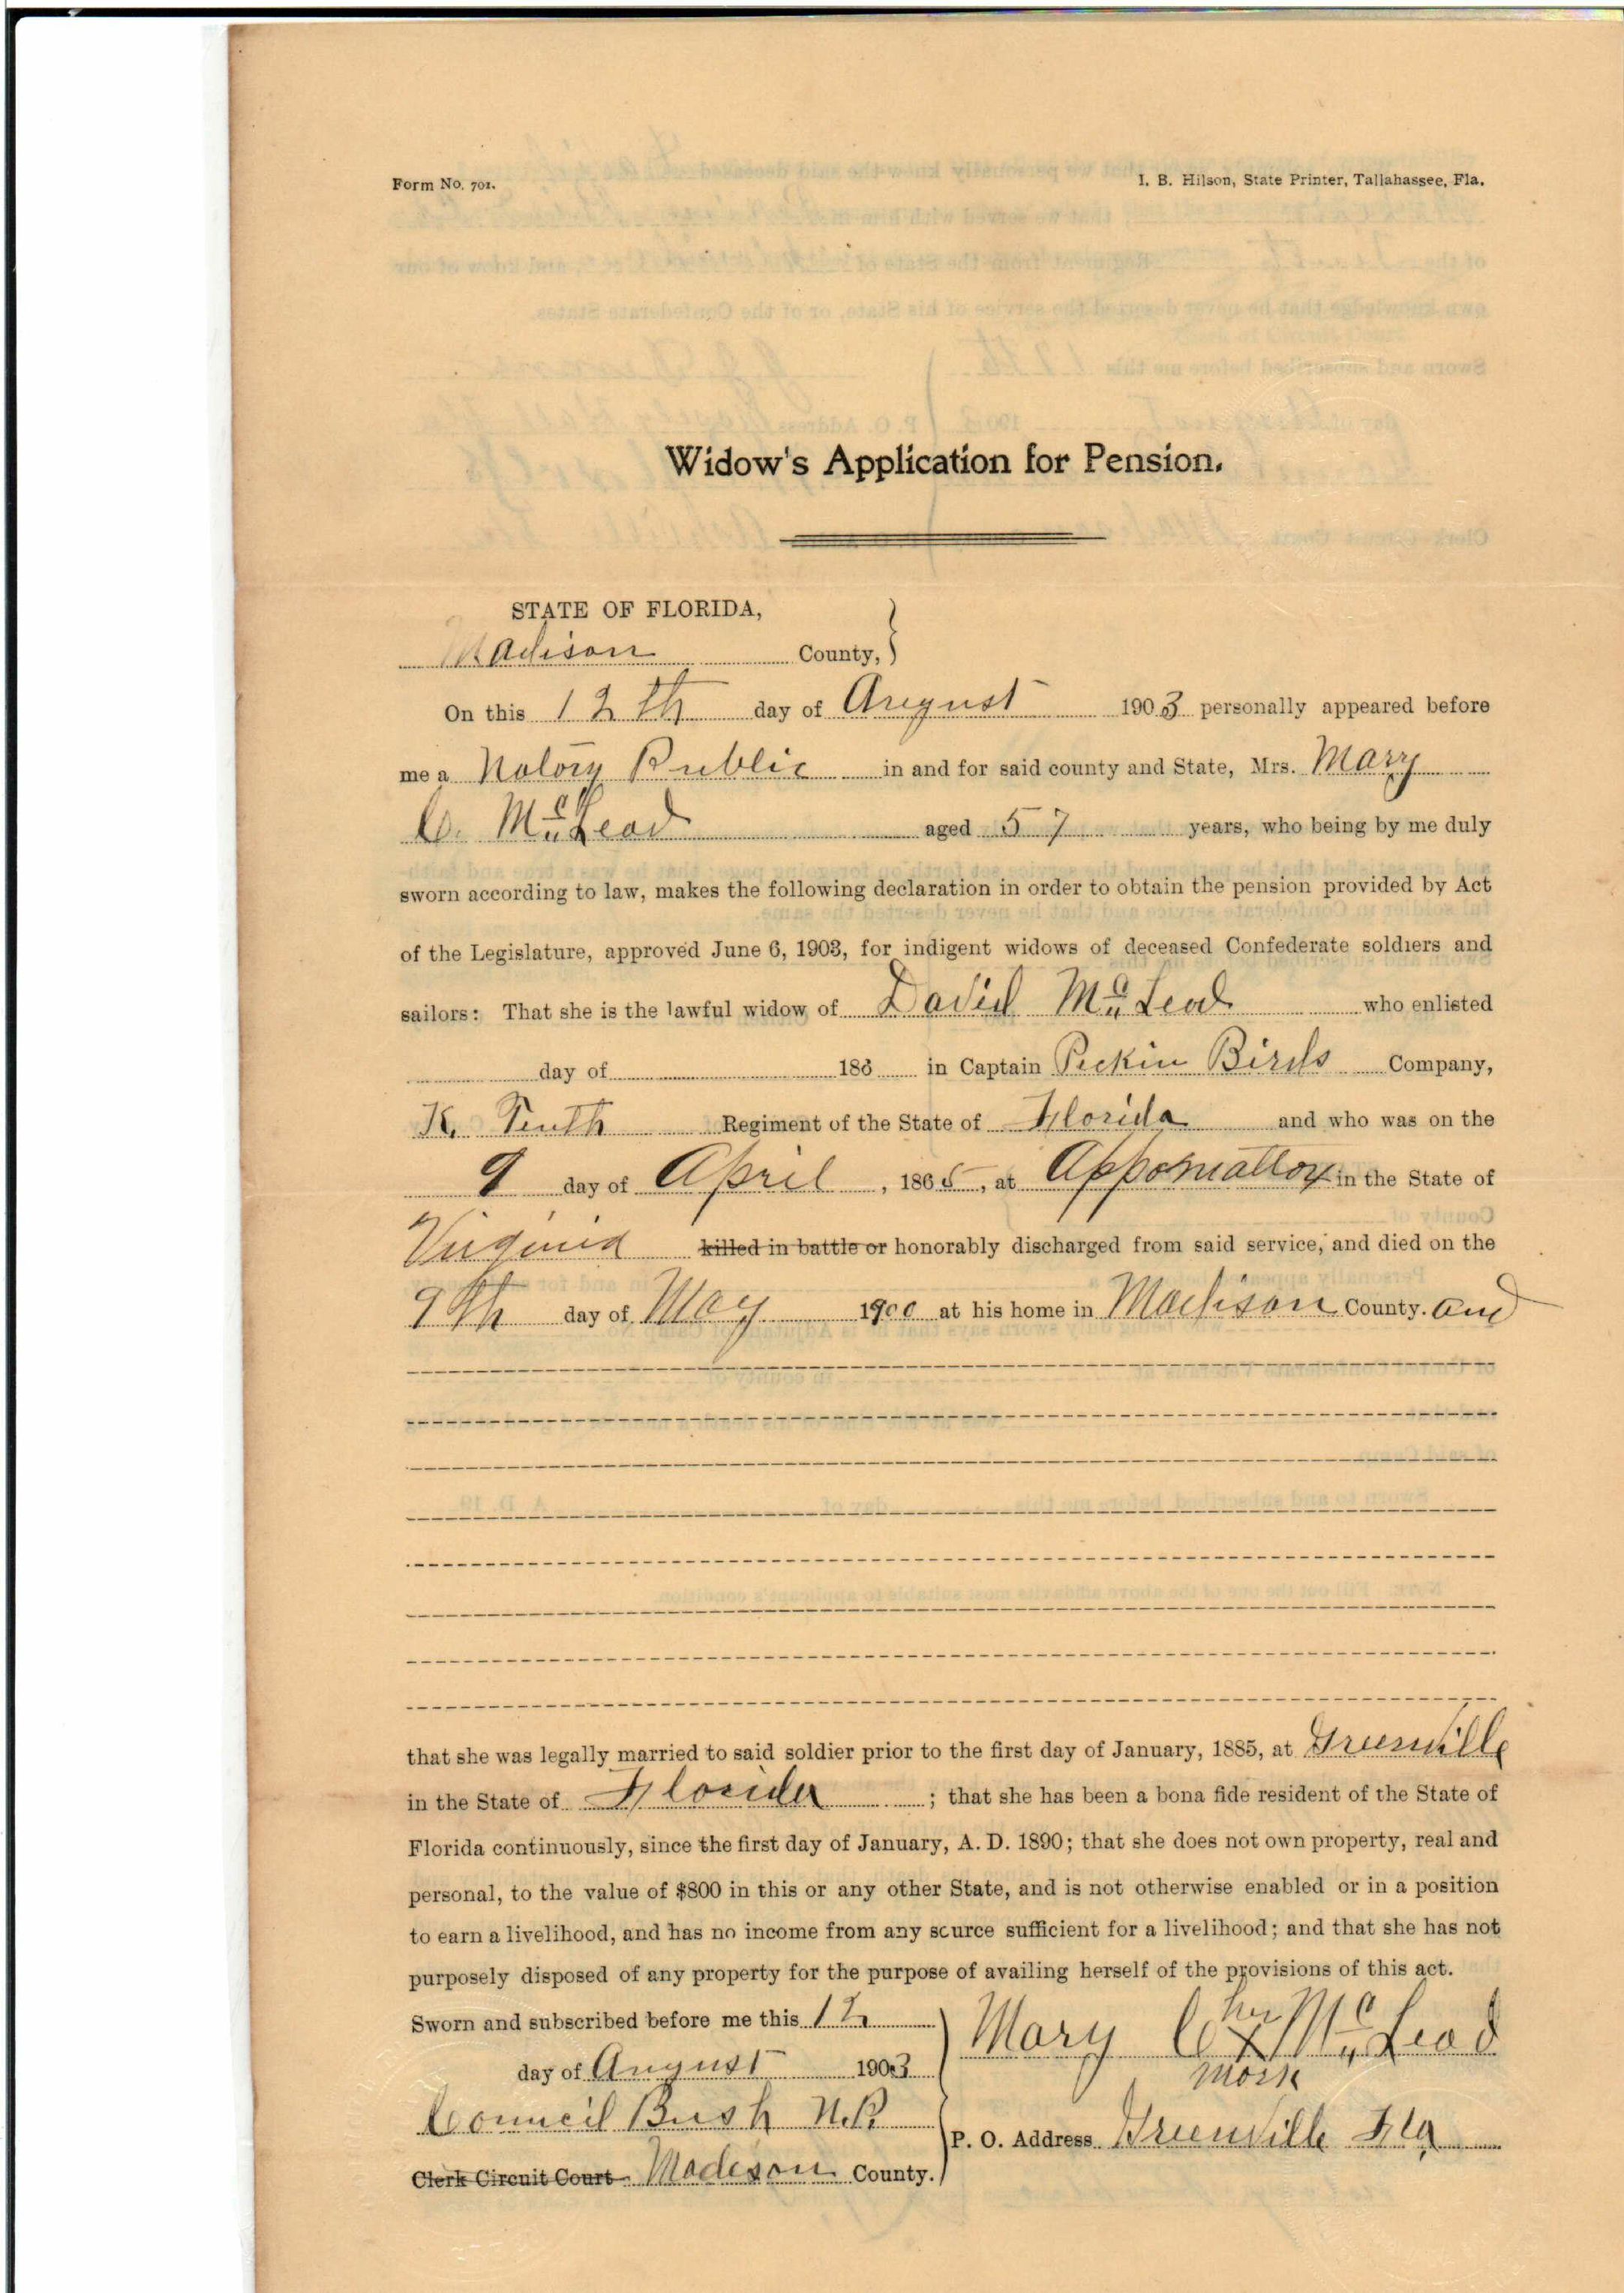 Form No. 701.
I. B. Hilson, State Printer, Tallahassee, Fla.
Widow's Application for Pension.
STATE OF FLORIDA,
Madison County, }
On this 12th day of August 1903 personally appeared before
me a Notory Public in and for said county and State, Mrs. Mary
C. McLeod aged 57 years, who being by me duly
sworn according to law, makes the following declaration in order to obtain the pension provided by Act
of the Legislature, approved June 6, 1903, for indigent widows of deceased Confederate soldiers and
sailors: That she is the lawful widow of David McLeod who enlisted
day of 186 in Captain Pickin Birds Company,
K, Tenth Regiment of the State of Florida and who was on the
9 day of April, 1865, at Appomattox in the State of
Virginia killed in battle or honorably discharged from said service, and died on the
9th day of May 1900 at his home in Madison County. and
that she was legally married to said soldier prior to the first day of January, 1885, at Greenville
in the State of Florida; that she has been a bona fide resident of the State of
Florida continuously, since the first day of January, A. D. 1890; that she does not own property, real and
personal, to the value of $800 in this or any other State, and is not otherwise enabled or in a position
to earn a livelihood, and has no income from any source sufficient for a livelihood; and that she has not
purposely disposed of any property for the purpose of availing herself of the provisions of this act.
Sworn and subscribed before me this 12
day of August 1903
Council Bush N.P.
Clerk Circuit Court Madison County.
her
Mary C x McLeod
mark
P. O. Address Greenville Fla